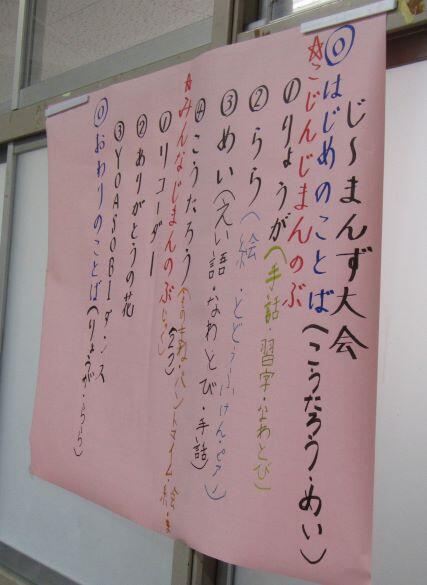 じ～まんず大会
⓪はじめのことば(こうたろう・めい)
☆こじんじまんのぶ
①りょうが(手話・習字・なわとび)
②らら(絵・とどうふけん・ピアノ)
③めい(えい語・なわとび・手話)
④こうたろう(ものまね・パントマイム・絵・
☆みんなじまんのぶ
①リコーダー(2つ)
②ありがとうの花
③YOASOBIダンス
⓪おわりのことば(りょうが・らら)